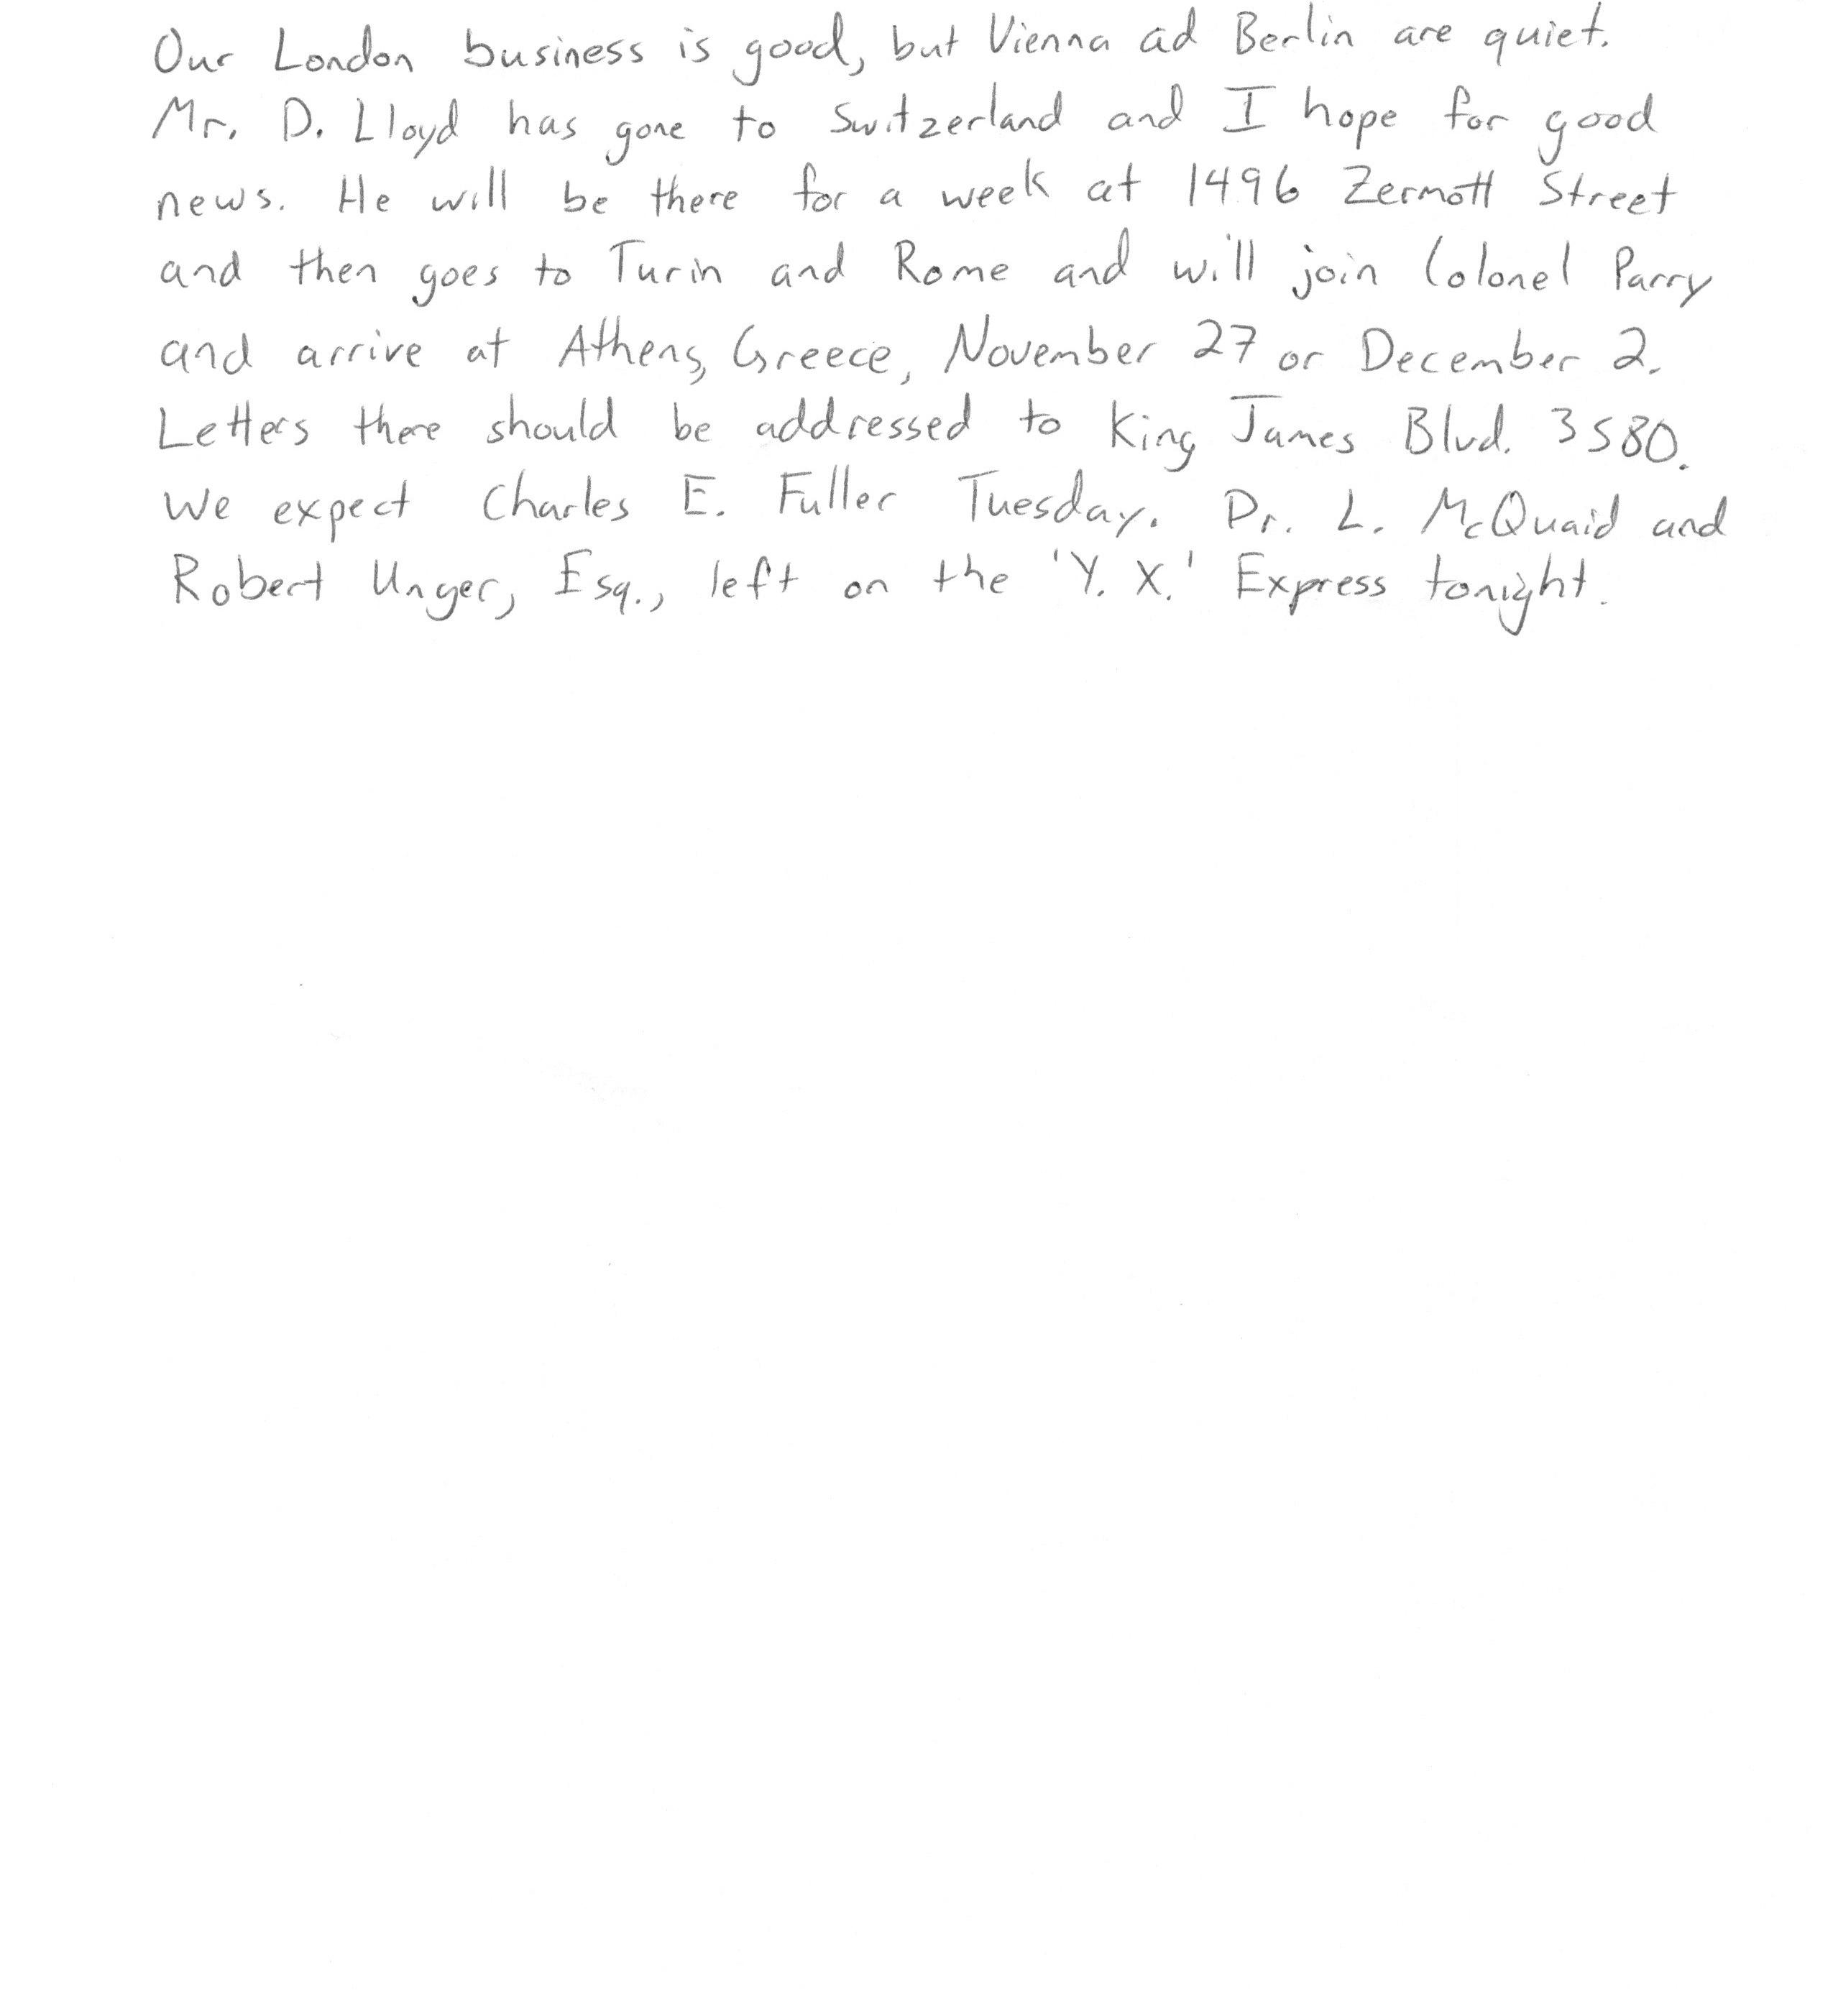 Our London business is good, but Vienna ad Berlin are quiet.
Mr. D. Lloyd has gone to Switzerland and I hope for good
news. He will be there for a week at 1496 Zermott Street
and then goes to Turin and Rome and will join Colonel Parry
and arrive at Athens, Greece, November 27 or December 2.
Letters there should be addressed to King James Blvd. 3580.
We expect Charles E. Fuller Tuesday. Dr. L. McQuaid and
Robert Unger, Esq., left on the 'Y. X.' Express tonight.